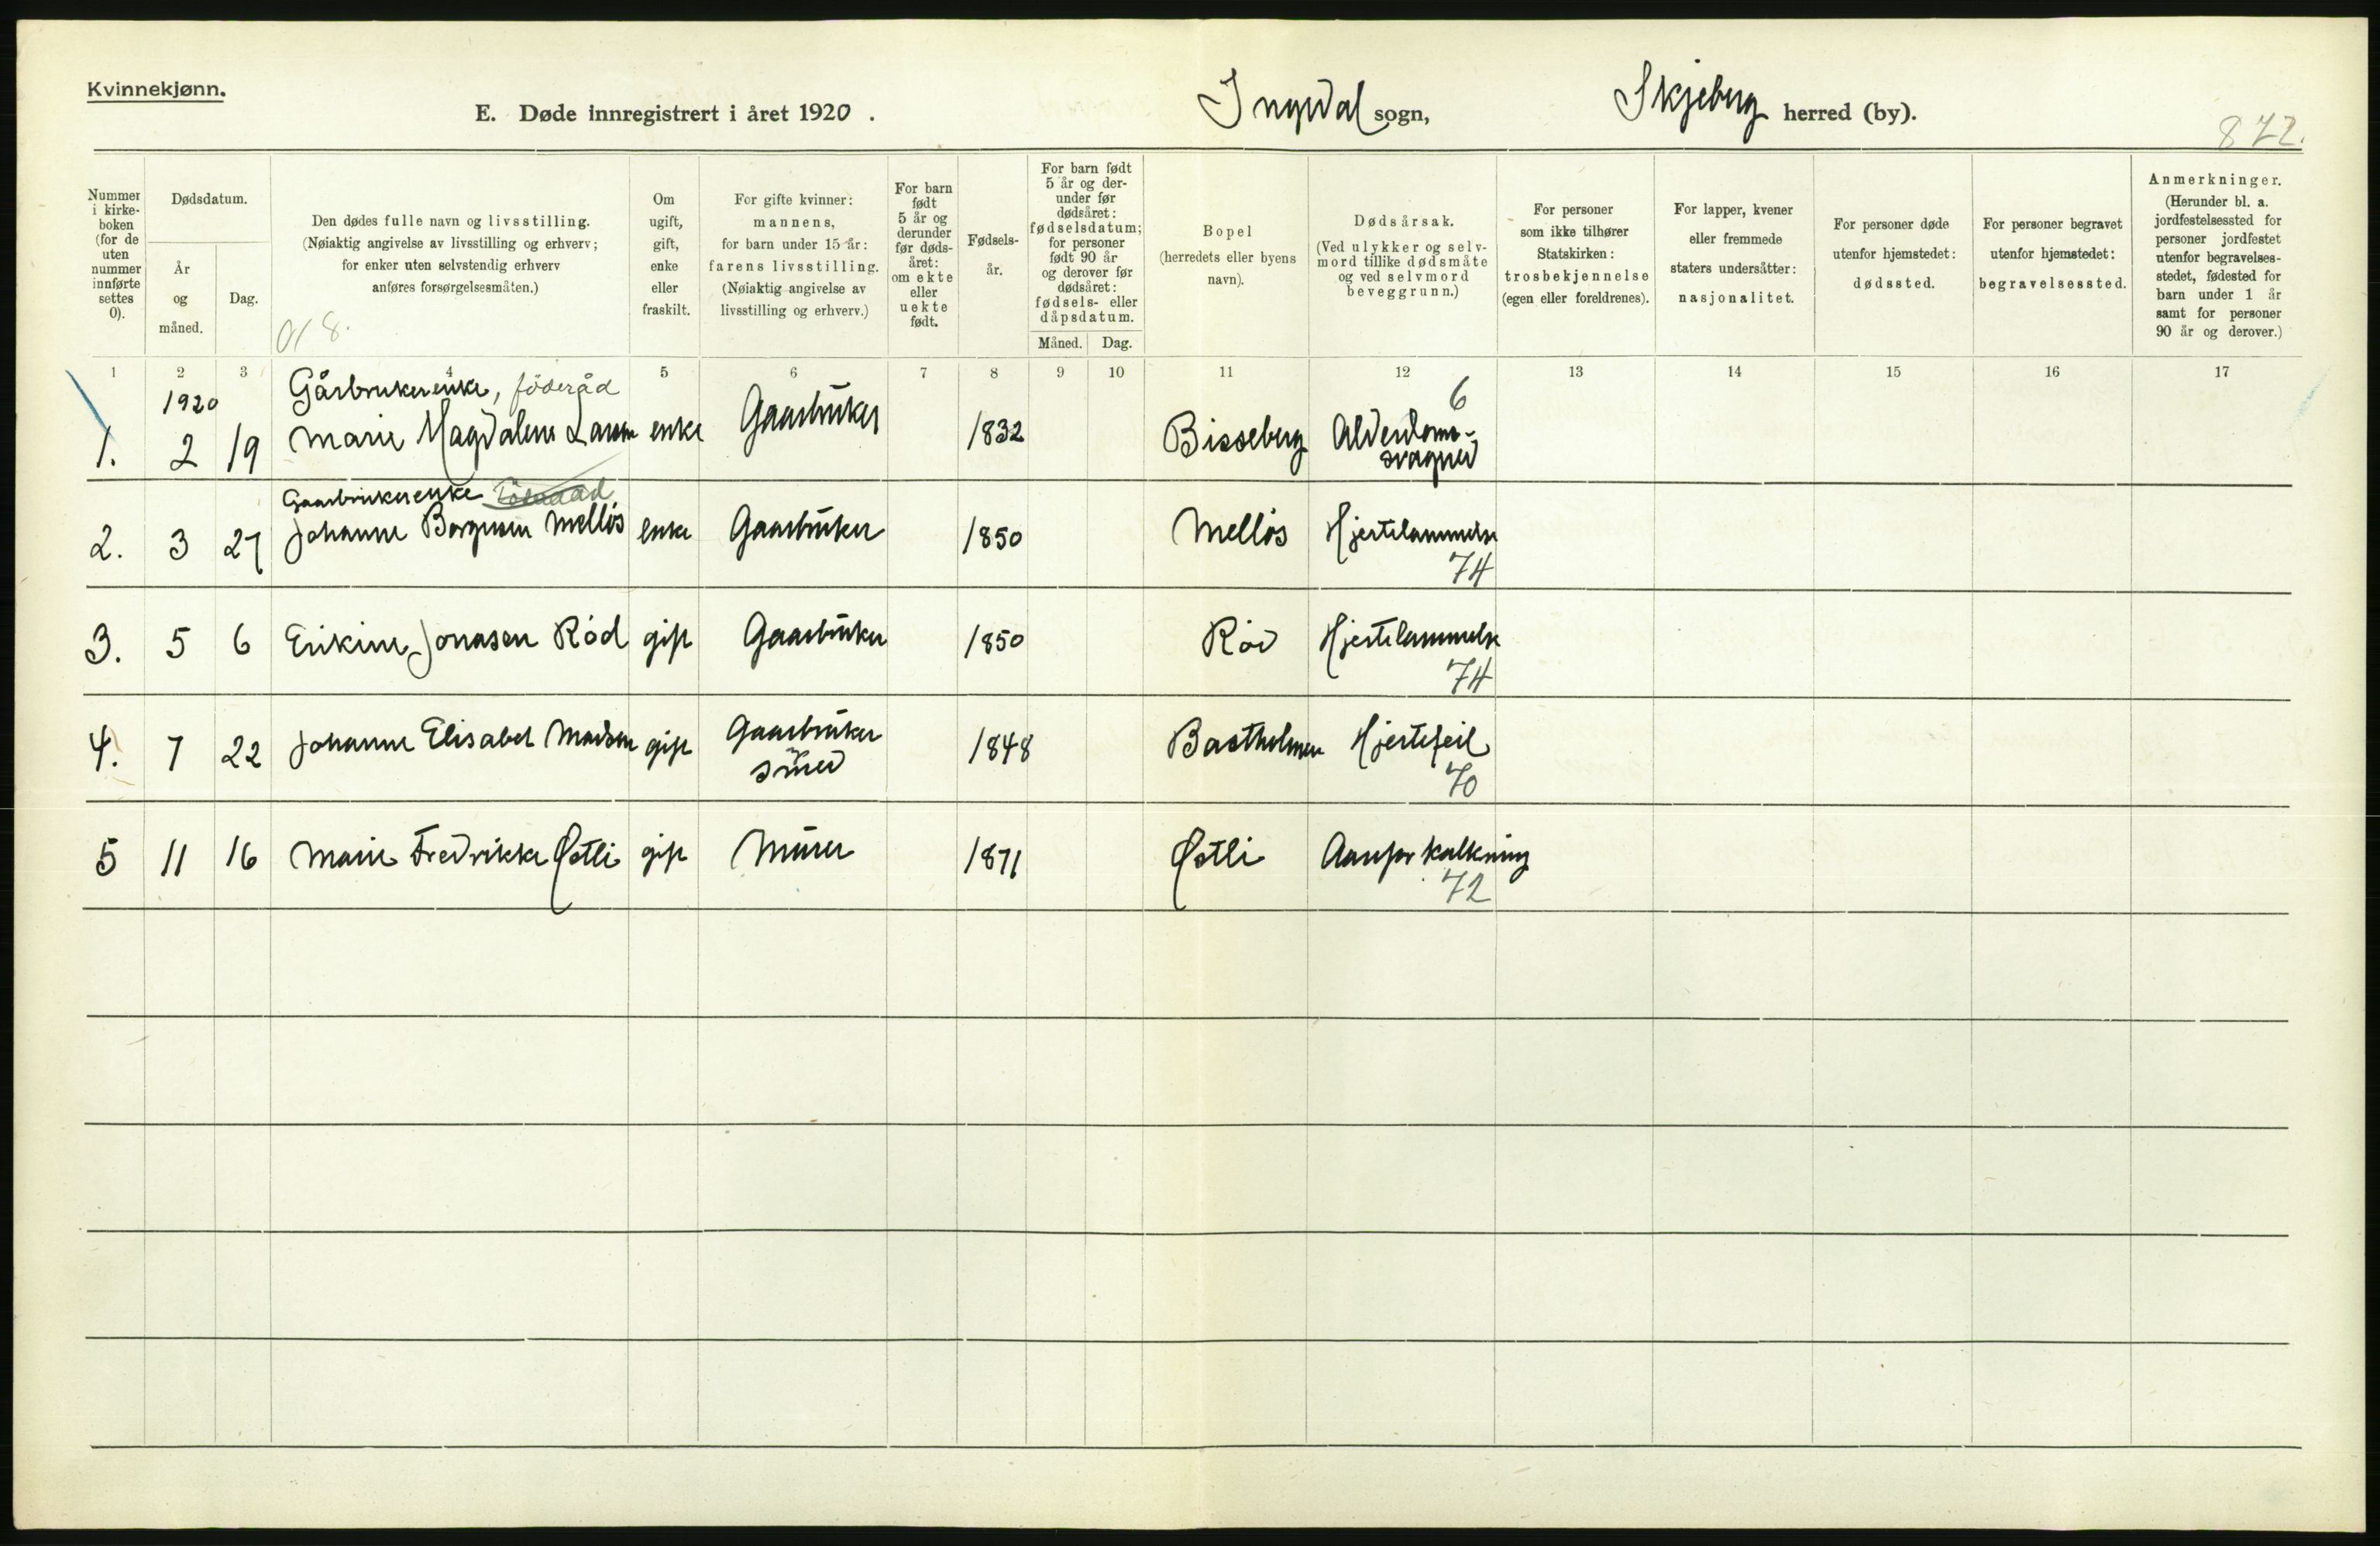 Kvinnekjønn.
E. Døde innregistrert i året 1920 . Ingedal sogn, Skjeberg herred (by).
872.
Nummer i kirke- boken (for de uten nummer innførte settes 0).
Dødsdatum.
År og måned.
Dag.
Den dødes fulle navn og livsstilling.
(Nøiaktig angivelse av livsstilling og erhverv;
for enker uten selvstendig erhverv
anføres forsørgelsesmåten.)
Om ugift, gift, enke eller fraskilt.
For gifte kvinner:
mannens,
for barn under 15 år:
farens livsstilling.
(Nøiaktig angivelse av
livsstilling og erhverv.)
For barn født 5 år og derunder før døds- året: om ekte eller uekte født.
Fødsels- år.
For barn født 5 år og der- under før dødsåret: fødselsdatum; for personer født 90 år og derover før dødsåret: fødsels- eller dåpsdatum.
Måned. Dag.
Bopel
(herredets eller byens
navn).
Dødsårsak.
(Ved ulykker og selv-
mord tillike dødsmåte
og ved selvmord
beveggrunn.)
For personer
som ikke tilhører
Statskirken:
trosbekjennelse
(egen eller foreldrenes).
For lapper, kvener
eller fremmede
staters undersåtter:
nasjonalitet.
For personer døde
utenfor hjemstedet:
dødssted.
For personer begravet
utenfor hjemstedet:
begravelsessted.
Anmerkninger.
(Herunder bl. a.
jordfestelsessted for
personer jordfestet
utenfor begravelses-
stedet, fødested for
barn under 1 år
samt for personer
90 år og derover.)
1 2 3 4 5 6 7 8 9 10 11 12 13 14 15 16 17
1920 Gårbrukerenke, föderåd 6
1. 2 19 Marie Magdalene Larsen enke Gaarbruker 1832 Bisseberg Alderdoms-
svaghed
Gaarbrukerenke Föderaad
2. 3 27 Johanne Borgersen Melløs enke Gaarbruker 1850 Melløs Hjertelammelse
74
3. 5 6 Erikine Jonasen Rød gift Gaarbruker 1850 Rød Hjertelammelse
74
4. 7 22 Johanne Elisabet Madsen gift Gaarbruker 1848 Bastholmen Hjertefeil
smed 70
5 11 16 Marie Fredrikke Østli gift Murer 1871 Østli Aareforkalkning
72